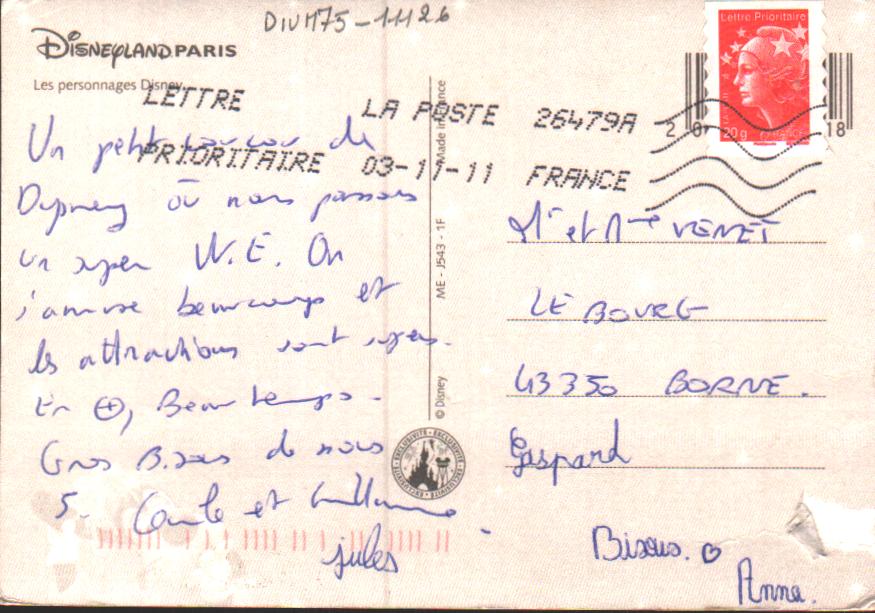 DIVM75-1112 6
DISNEYLAND PARIS
Les personnages Disney
Lettre Prioritaire
20g
LETTRE PRIORITAIRE
LA POSTE 26479A
03-11-11 FRANCE
20 18
Made in France
ME - J543 - 1F
© Disney
EXCLUSIVITÉ EXCLUSIVITÉ EXCLUSIVITÉ
Un petit coucou de
Disney où nous passons
un super W.E. On
s'amuse beaucoup et
les attractions sont supers.
En ⊕, Beau temps.
Gros Bisous de nous
5. et Guillaume
Jules
Mr et Mme VENET
LE BOURG
43350 BORNE.
Gaspard
Bisous. ♡
Anna.